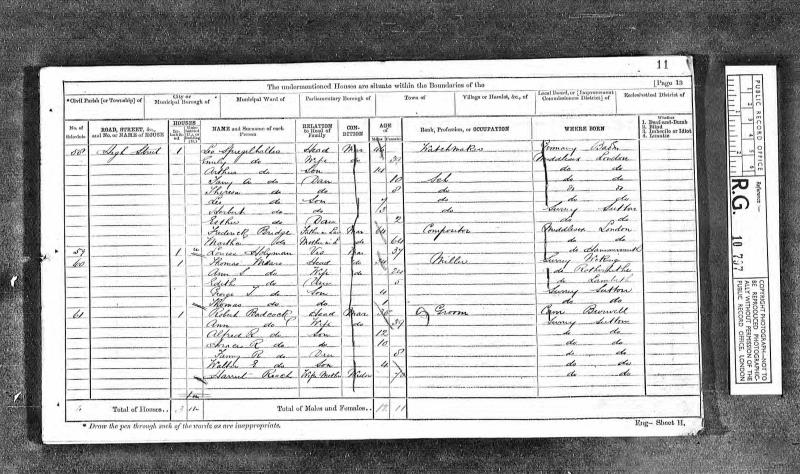 11
The undermentioned Houses are situate within the Boundaries of the
[Page 13
*Civil Parish [or Township] of
City or Municipal Borough of
Municipal Ward of
Parliamentary Borough of
Town of
Village or Hamlet, &c., of
Local Board, or [Improvement Commissioners District] of
Ecclesiastical District of
No. of Schedule
ROAD, STREET, &c., and No. or NAME of HOUSE
HOUSES
NAME and Surname of each Person
RELATION to Head of Family
CONDITION
AGE of
Males
Females
Rank, Profession, or OCCUPATION
WHERE BORN
Whether
1. Deaf-and-Dumb
2. Blind
3. Imbecile or Idiot
4. Lunatic
58 High Street 1 Leo Head Mar 46 Watchmaker Germany Baden
Emily do Wife do 39 Middlesex London
Arthur do Son 14 do do
Fanny A do Daur 10 Sch do do
Theresa do do 8 do do do
Leo do Son 7 do do do
Herbert do do 3 do Surrey Sutton
Esther do Daur 2 do do
Frederick Bridge Father in Law Mar 64 Compositor Middlesex London
Martha do Mother in do 64 do do
59 Louise Vis Mar 37 do Hammersmith
60 1 Thomas Head do 24 Miller Surrey Woking
Ann S do Wife do 24 do Rotherhithe
Edith do Daur 5 do Lambeth
George T do Son 4 Surrey Sutton
Thomas do do 1 do do
61 1 Robert Badcock Head Mar 38 Groom Cam
Ann do Wife do 39 Surrey Sutton
Alfred R do Son 12 do do
Horace R do do 10 do do
Fanny R do Daur 8 do do
Walter E do Son 4 do do
Harriet Widow 70 do do
Total of Houses..
Total of Males and Females..
12 11
* Draw the pen through such of the words as are inappropriate.
Eng— Sheet H.
PUBLIC RECORD OFFICE
Reference:—
R.G. 10 737
COPYRIGHT PHOTOGRAPH—NOT TO BE REPRODUCED PHOTOGRAPHICALLY WITHOUT PERMISSION OF THE PUBLIC RECORD OFFICE, LONDON